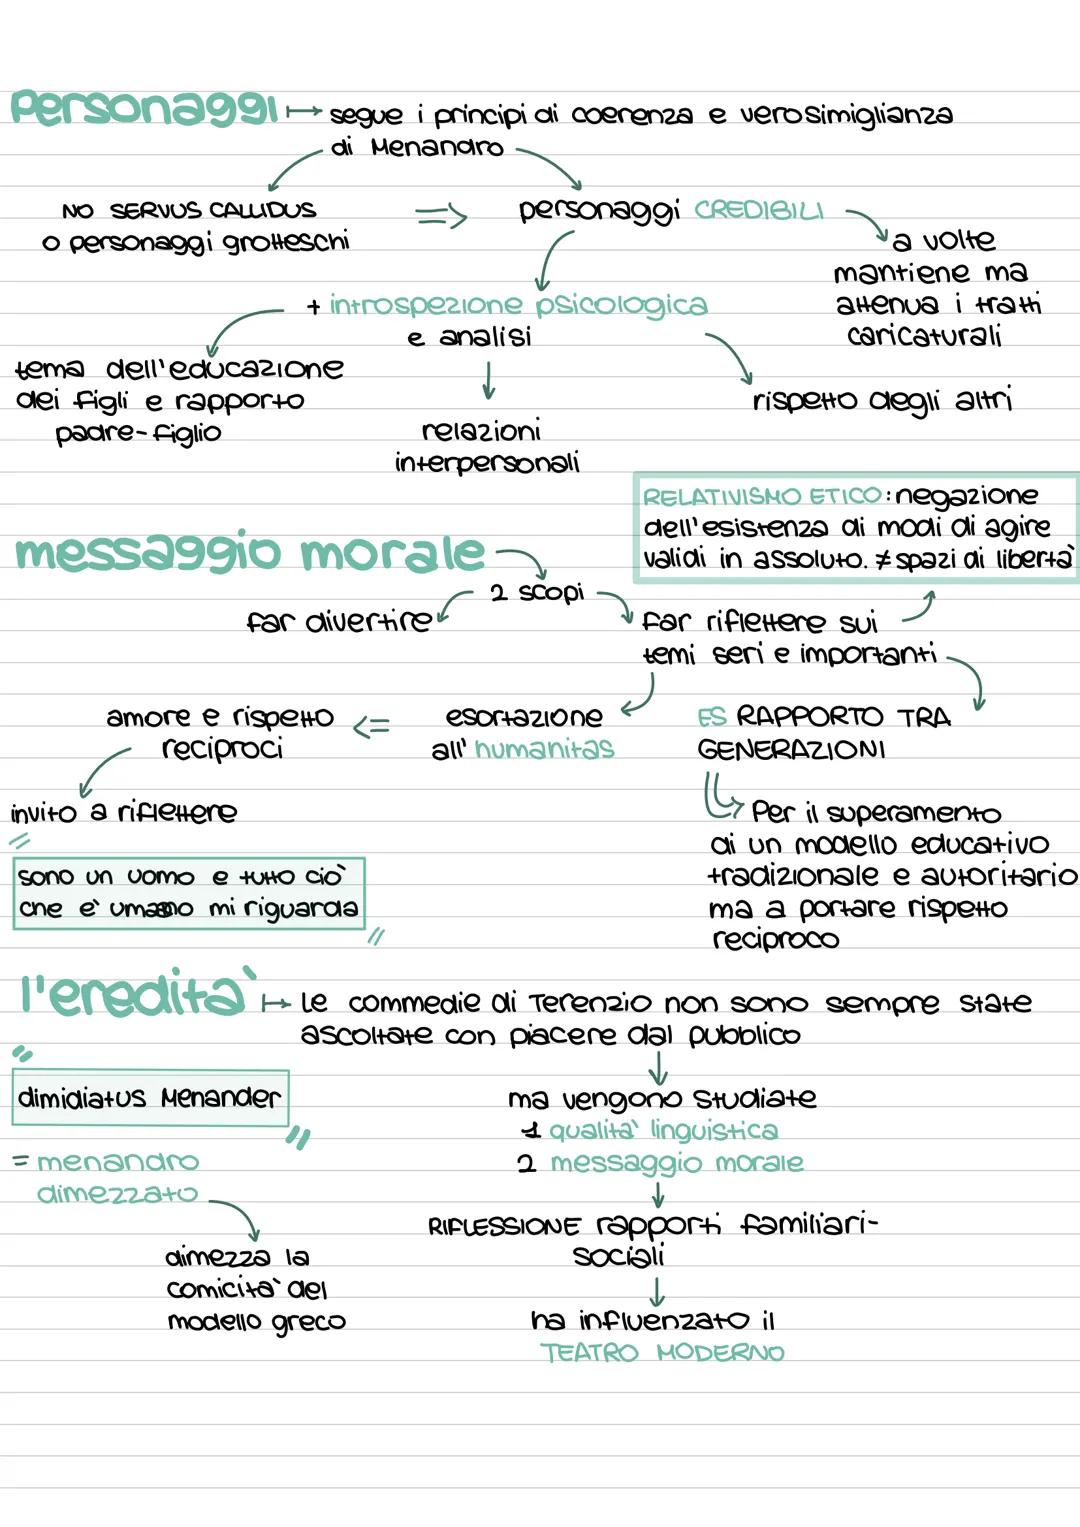 Personaggi ↦ segue i principi di coerenza e verosimiglianza
di Menandro
NO SERVUS CALLIDUS
o personaggi grotteschi
⇒ personaggi CREDIBILI
a volte
mantiene ma
attenua i tratti
caricaturali
+ introspezione psicologica
e analisi
tema dell'educazione
dei figli e rapporto
padre-figlio
relazioni
interpersonali
rispetto degli altri
RELATIVISMO ETICO: negazione
dell'esistenza di modi di agire
validi in assoluto. ≠ spazi di libertà
messaggio morale
2 scopi
far divertire
far riflettere sui
temi seri e importanti
esortazione
all'humanitas
⇐
amore e rispetto
reciproci
invito a riflettere
"
sono un uomo e tutto ciò
che è umano mi riguarda
"
ES RAPPORTO TRA
GENERAZIONI
Per il superamento
di un modello educativo
tradizionale e autoritario
ma a portare rispetto
reciproco
l'eredità ↦ Le commedie di Terenzio non sono sempre state
ascoltate con piacere dal pubblico
"
dimidiatus Menander
"
= menandro
dimezzato
dimezza la
comicità del
modello greco
ma vengono studiate
1 qualità linguistica
2 messaggio morale
RIFLESSIONE rapporti familiari-
sociali
ha influenzato il
TEATRO MODERNO